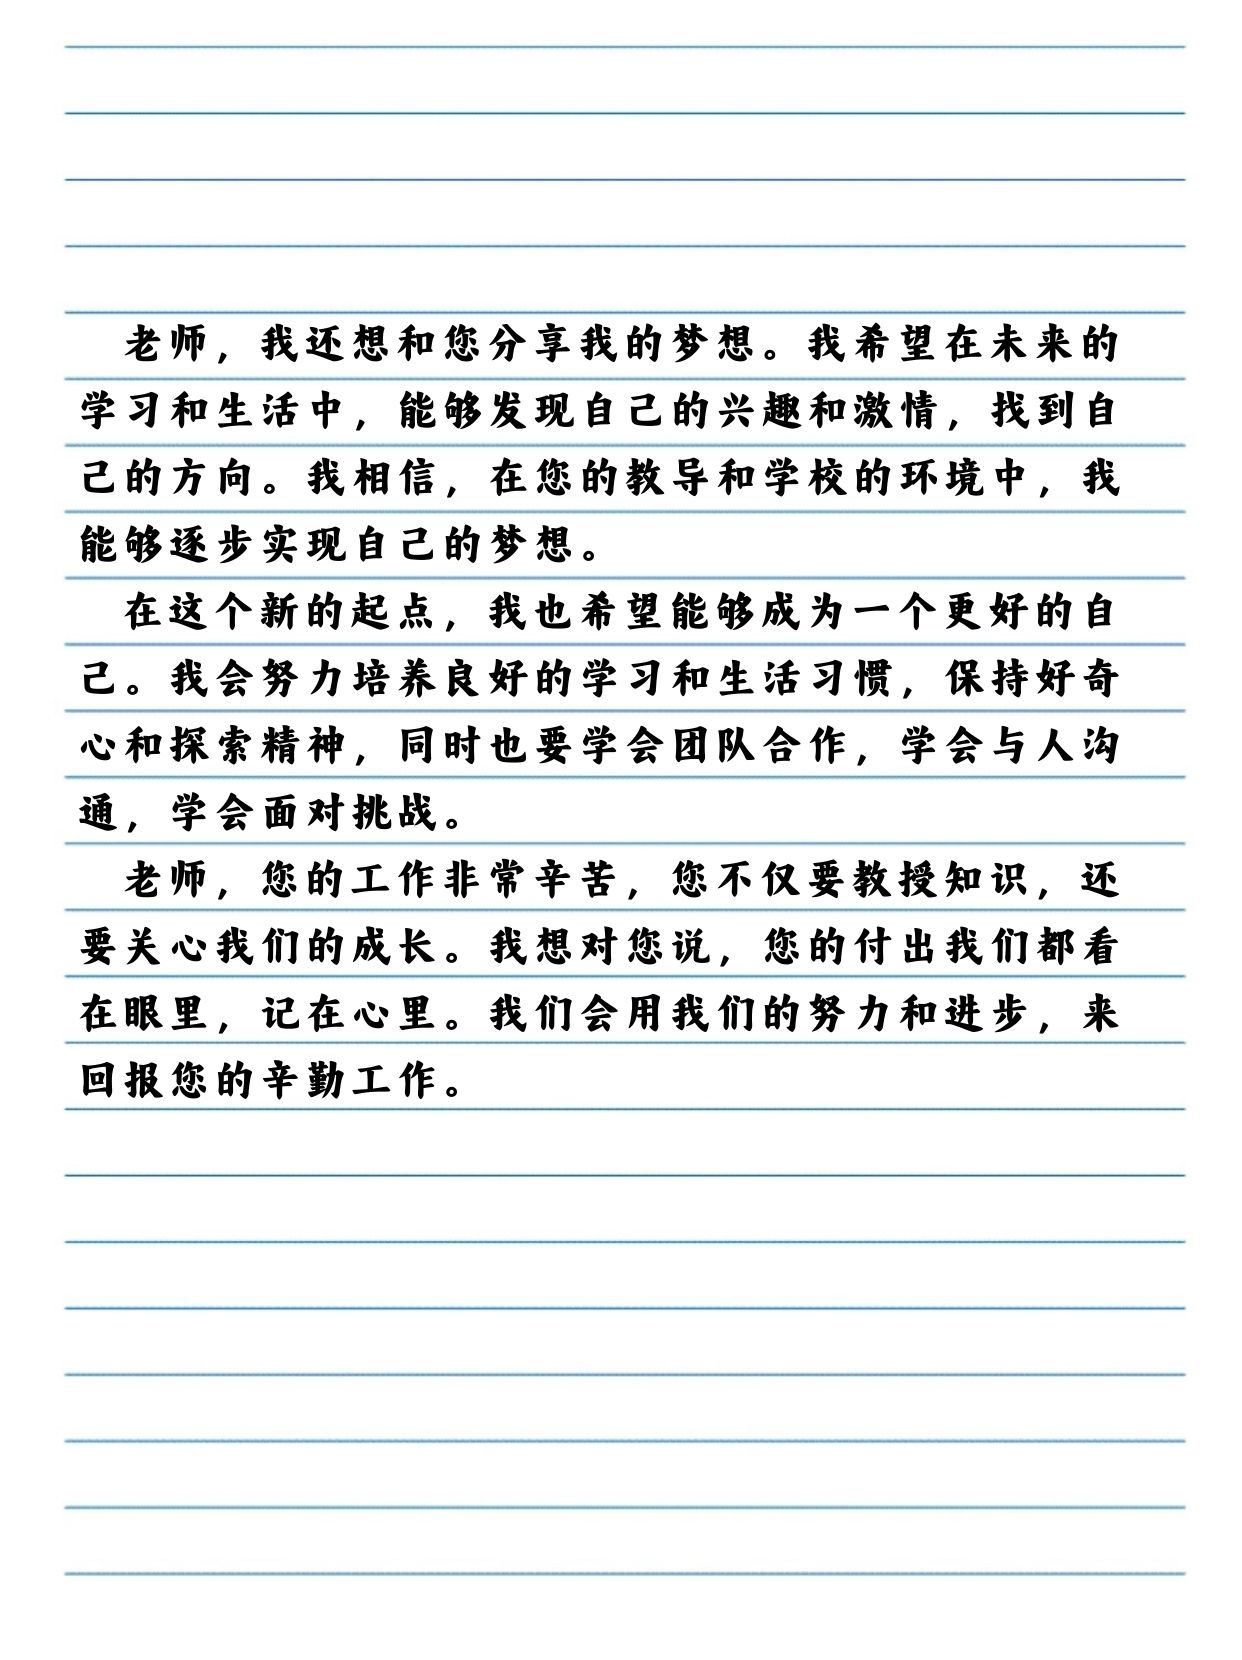 老师，我还想和您分享我的梦想。我希望在未来的
学习和生活中，能够发现自己的兴趣和激情，找到自
己的方向。我相信，在您的教导和学校的环境中，我
能够逐步实现自己的梦想。
在这个新的起点，我也希望能够成为一个更好的自
己。我会努力培养良好的学习和生活习惯，保持好奇
心和探索精神，同时也要学会团队合作，学会与人沟
通，学会面对挑战。
老师，您的工作非常辛苦，您不仅要教授知识，还
要关心我们的成长。我想对您说，您的付出我们都看
在眼里，记在心里。我们会用我们的努力和进步，来
回报您的辛勤工作。